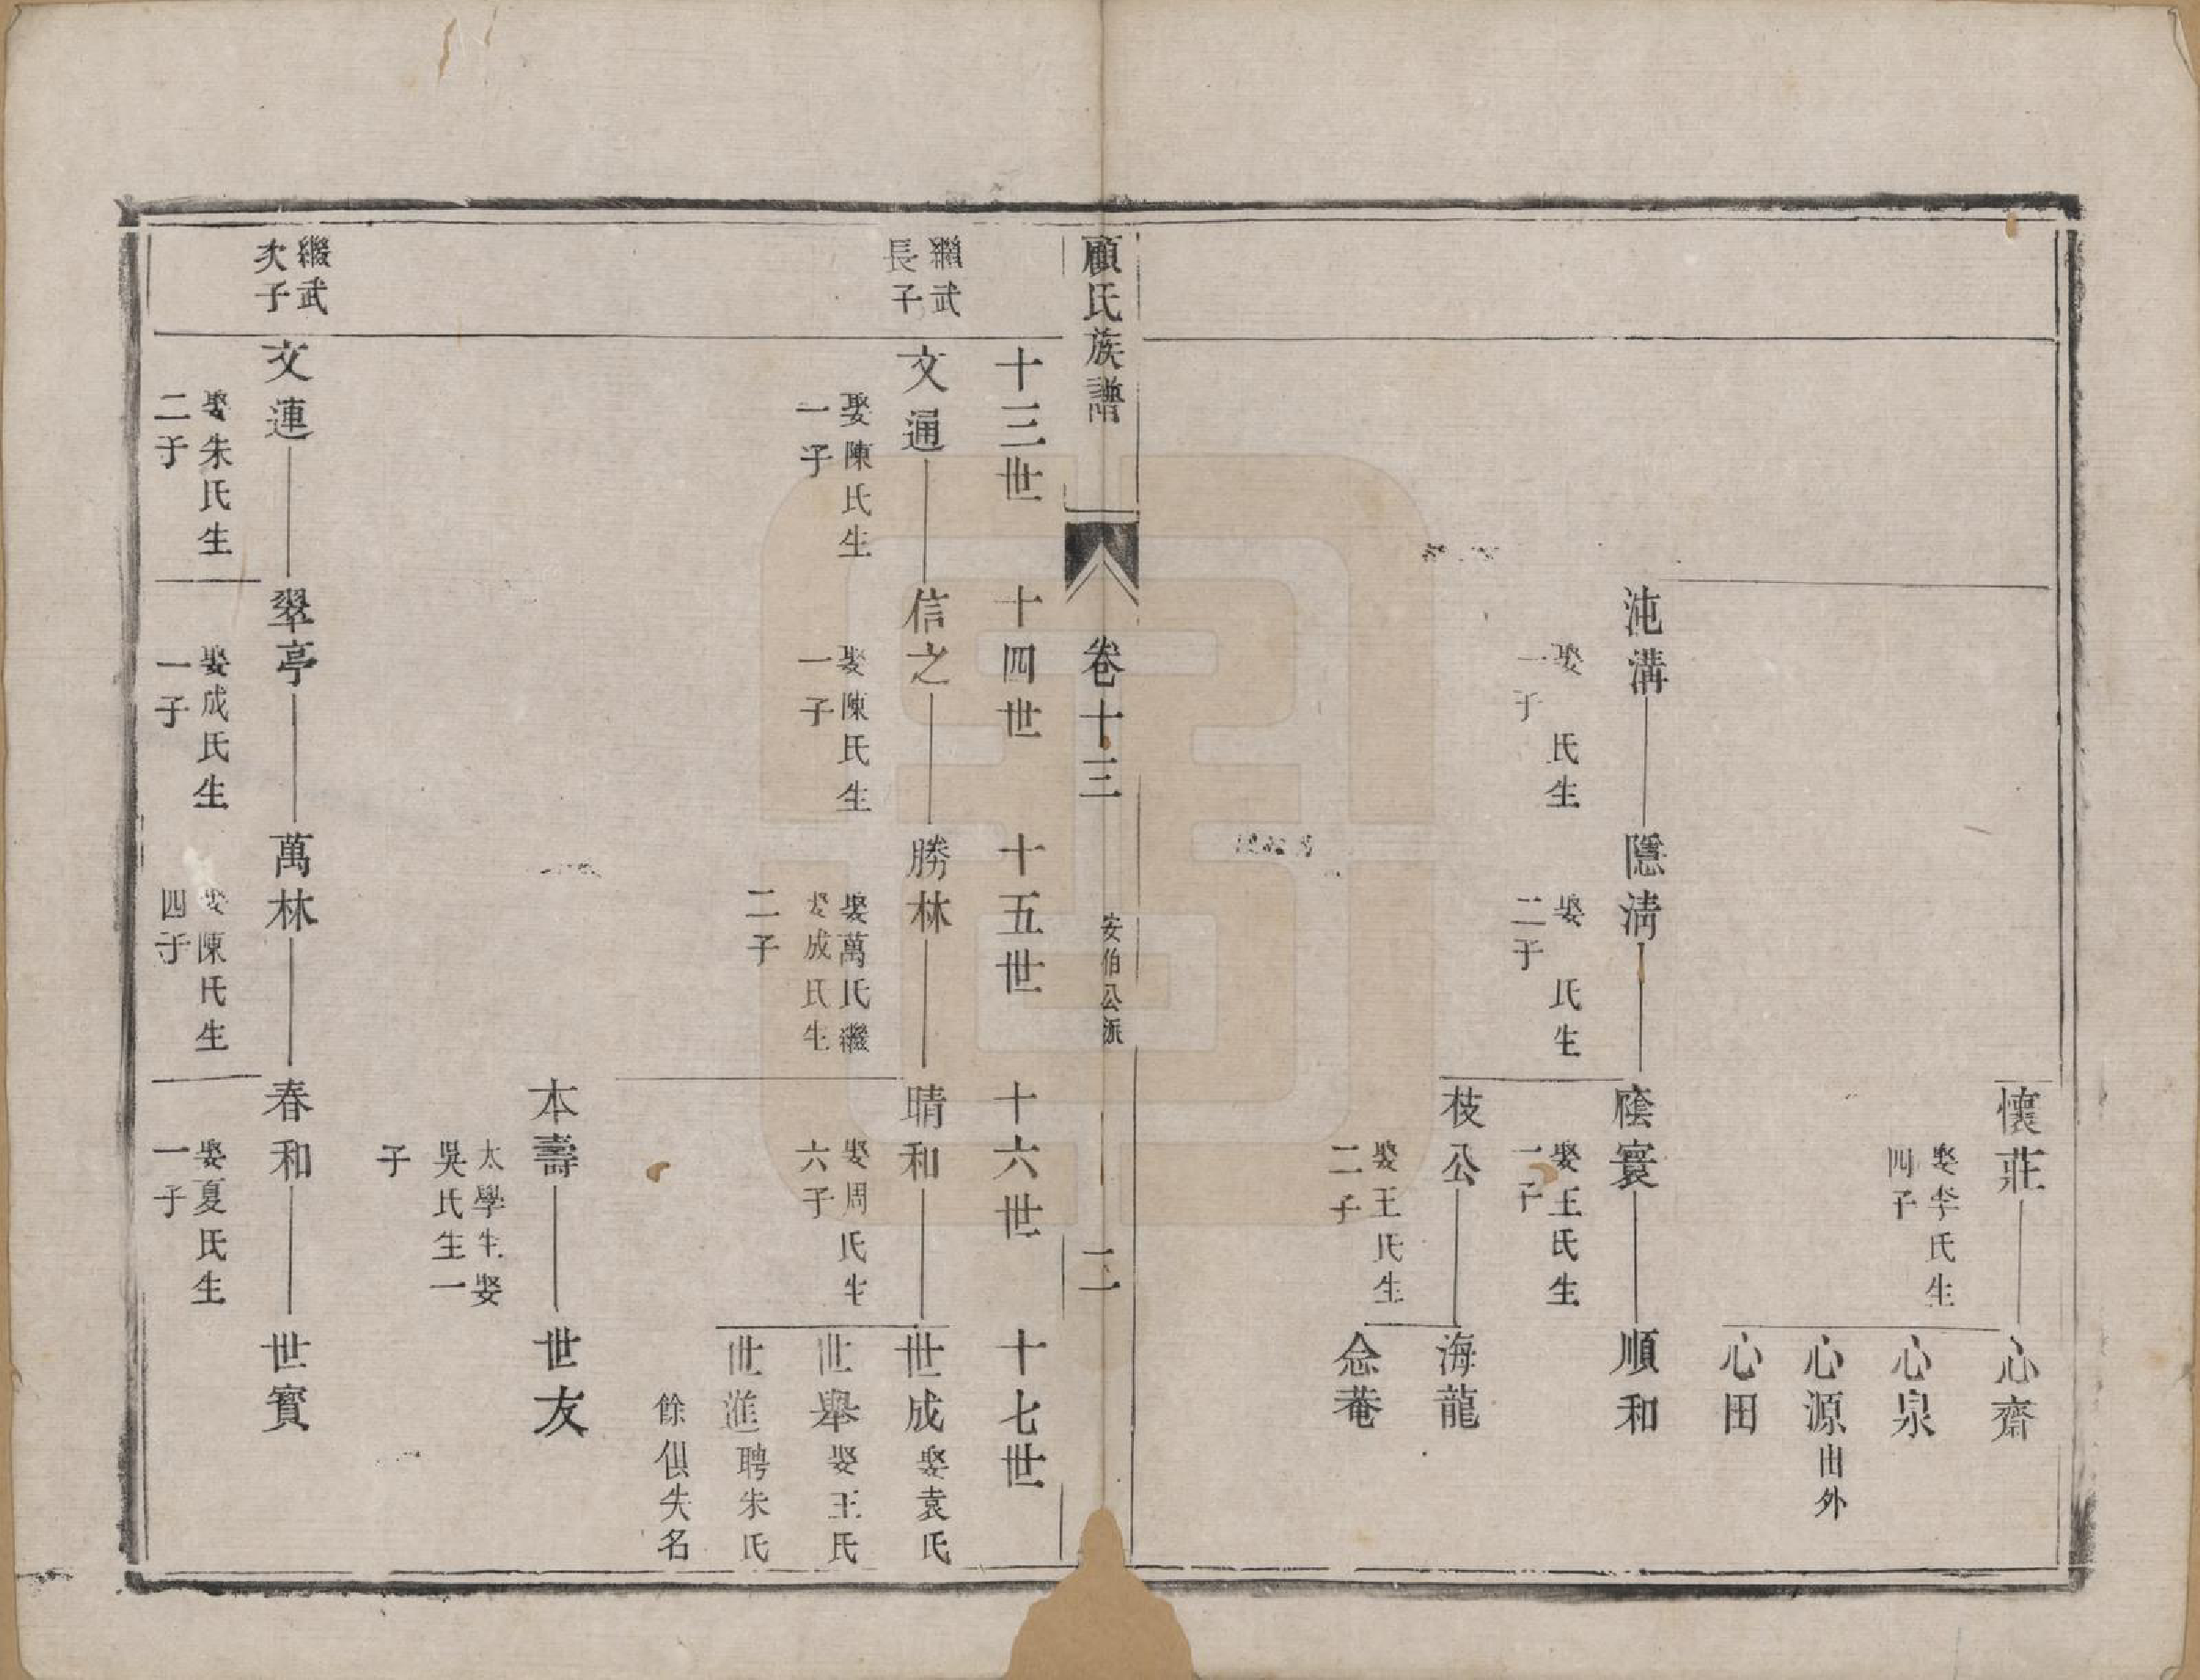 沌溝
娶　氏生
一子
隱淸
娶　氏生
二子
懷莊
娶李氏生
四子
心齋
心泉
心源出外
心田
蔭寰
娶王氏生
一子
順和
枝公
娶王氏生
二子
海龍
念菴
顧氏族譜
卷十三
安伯公派
二
十三世
十四世
十五世
十六世
十七世
繼武
長子
文通
娶陳氏生
一子
信之
娶陳氏生
一子
勝林
娶萬氏繼
娶成氏生
二子
晴和
娶周氏生
六子
世成娶袁氏
世舉娶王氏
世進聘朱氏
餘俱失名
本壽
太學生娶
吳氏生一
子
世友
繼武
次子
文連
娶朱氏生
二子
翠亭
娶成氏生
一子
萬林
娶陳氏生
四子
春和
娶夏氏生
一子
世寶